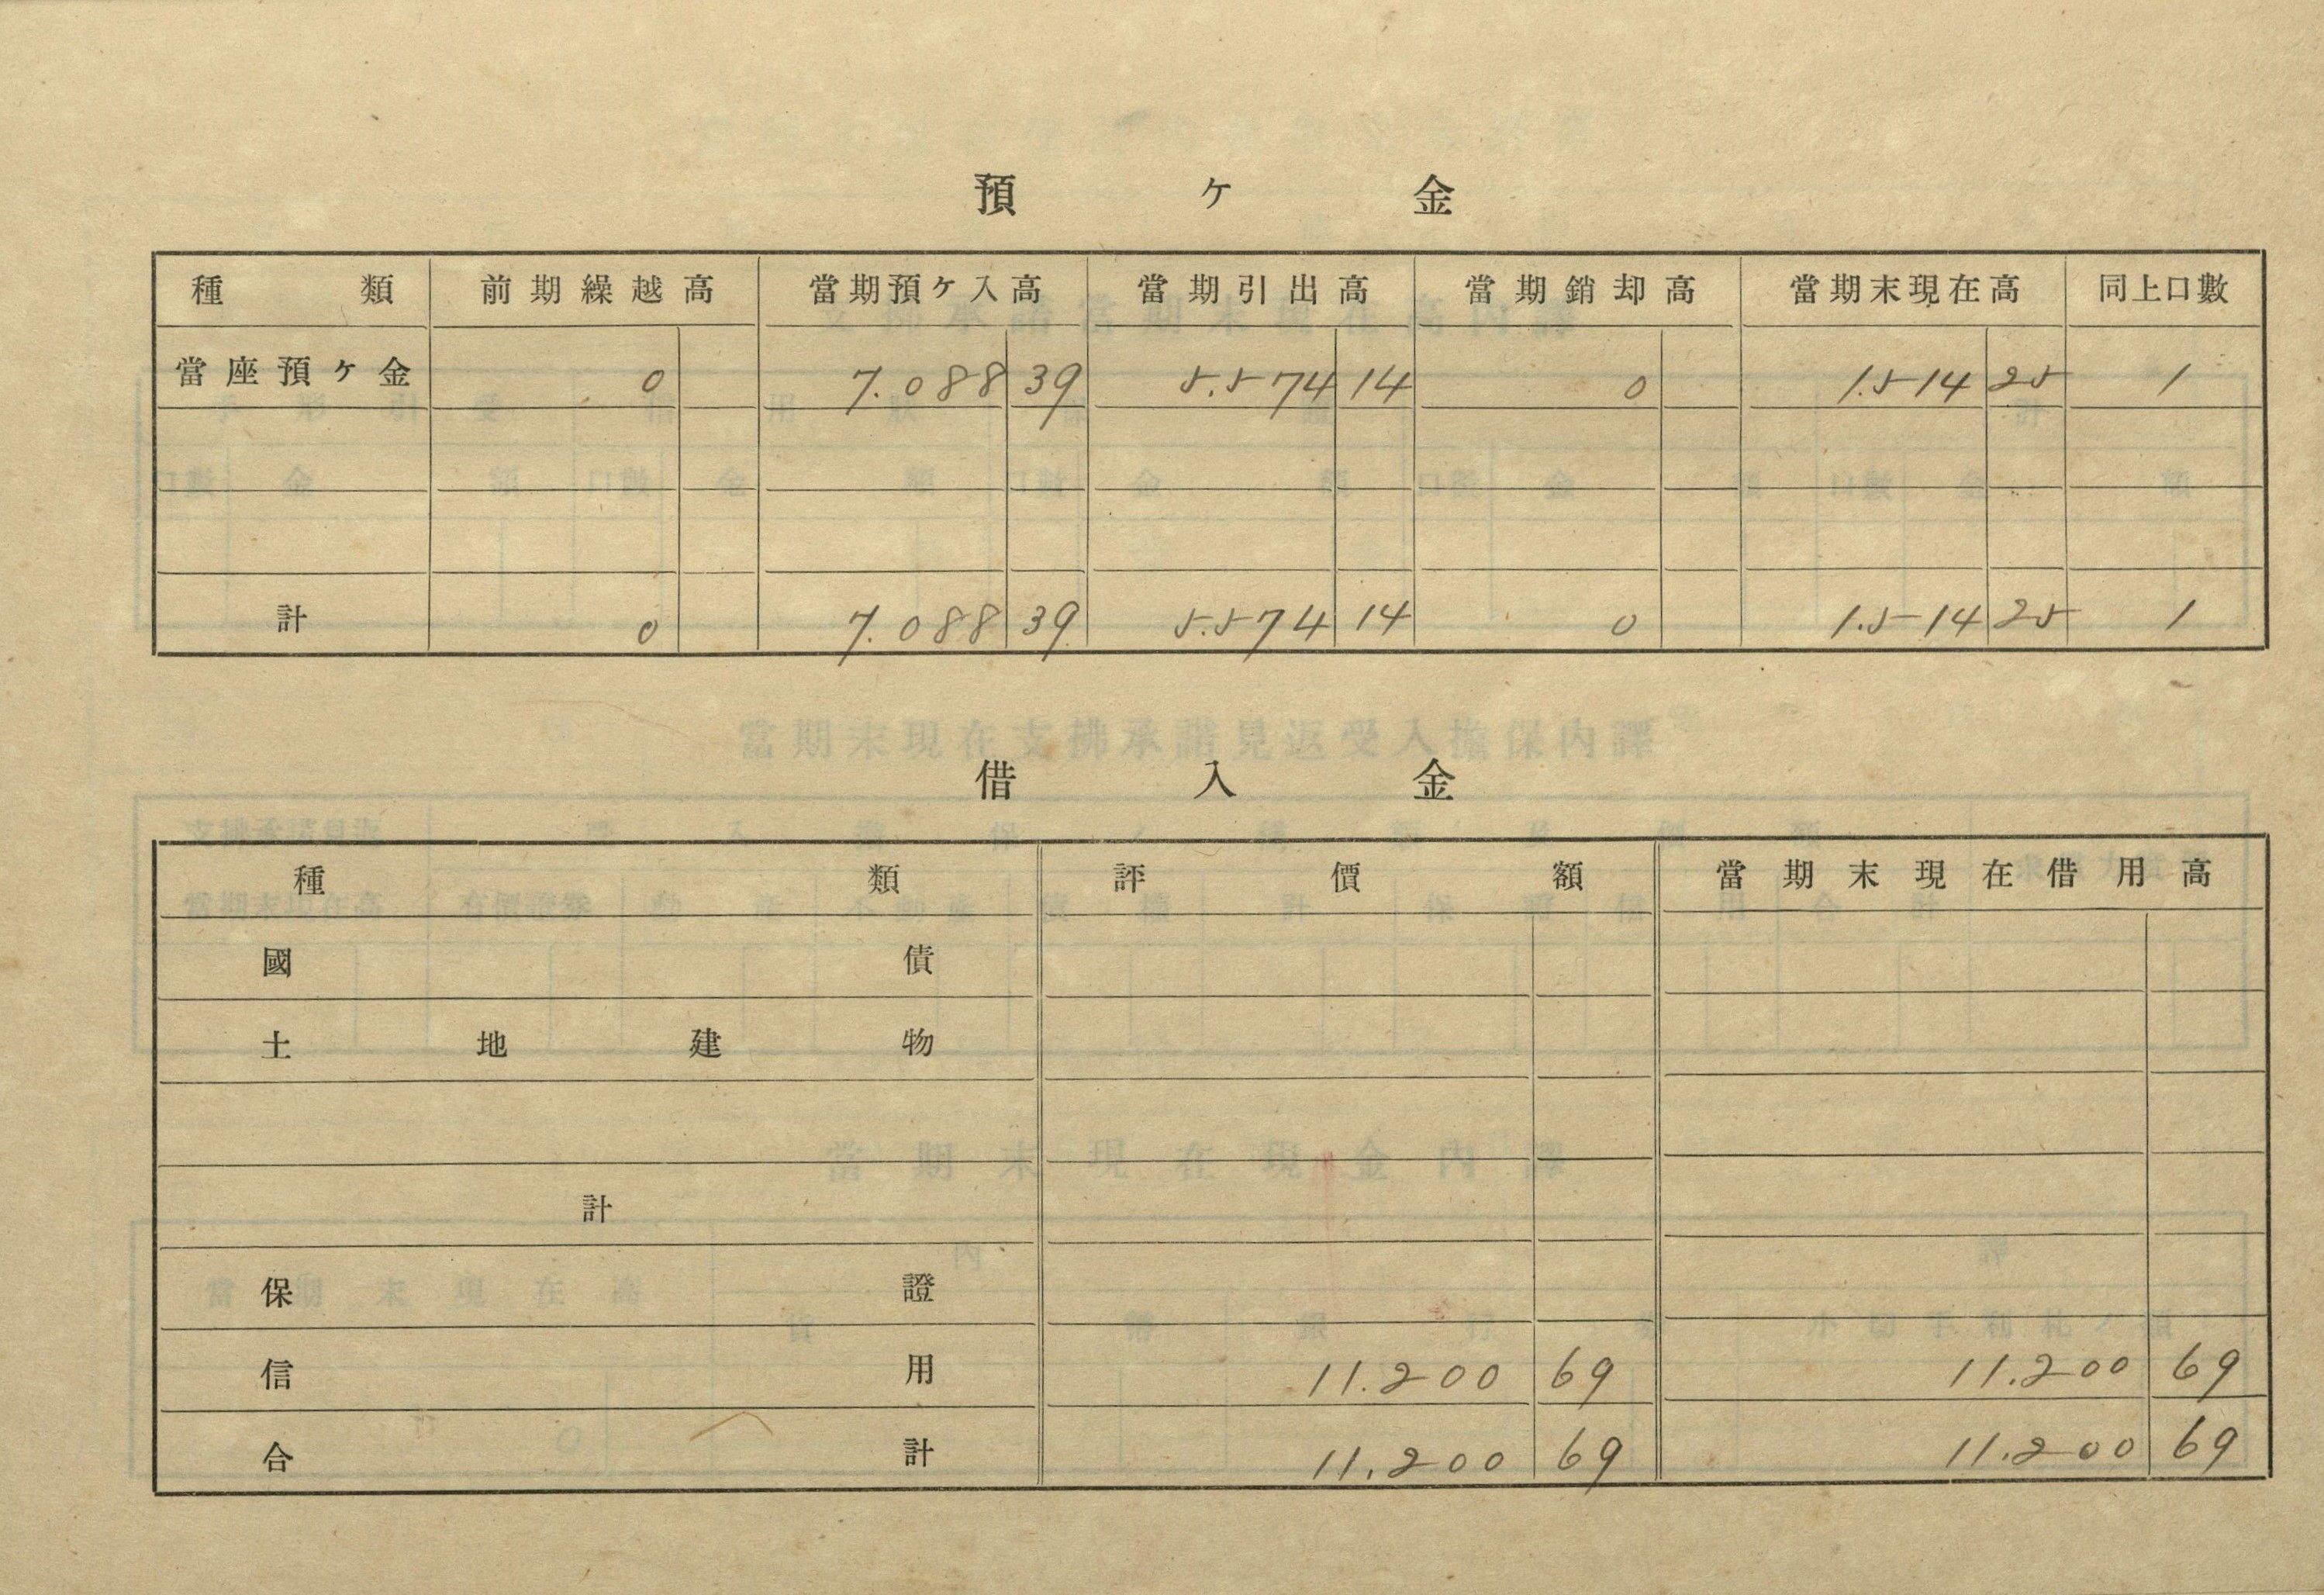 預ケ金
種類 前期繰越高 當期預ケ入高 當期引出高 當期銷却高 當期末現在高 同上口數
當座預ケ金 0 7.088 39 5.574 14 0 1.514 25 1
計 0 7.088 39 5.574 14 0 1.514 25 1
借入金
種類 評價額 當期末現在借用高
國債
土地建物
計
保證
信用 11.200 69 11.200 69
合計 11.200 69 11.200 69